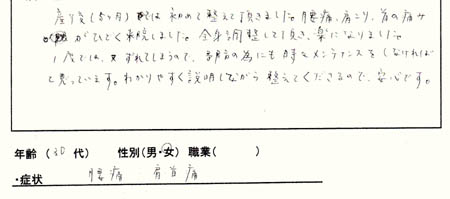 産後(5ヶ月)で初めて整えて頂きました。腰痛、肩こり、首の痛み
がひどく来院しました。全身調整して頂き、楽になりました。
1度では、又ずれてしまうので、予防の為にも時々メンテナンスをしなければ
と思っています。わかりやすく説明しながら整えてくださるので、安心です。
年齢(30代) 性別(男・女) 職業( )
・症状 腰痛 肩首痛